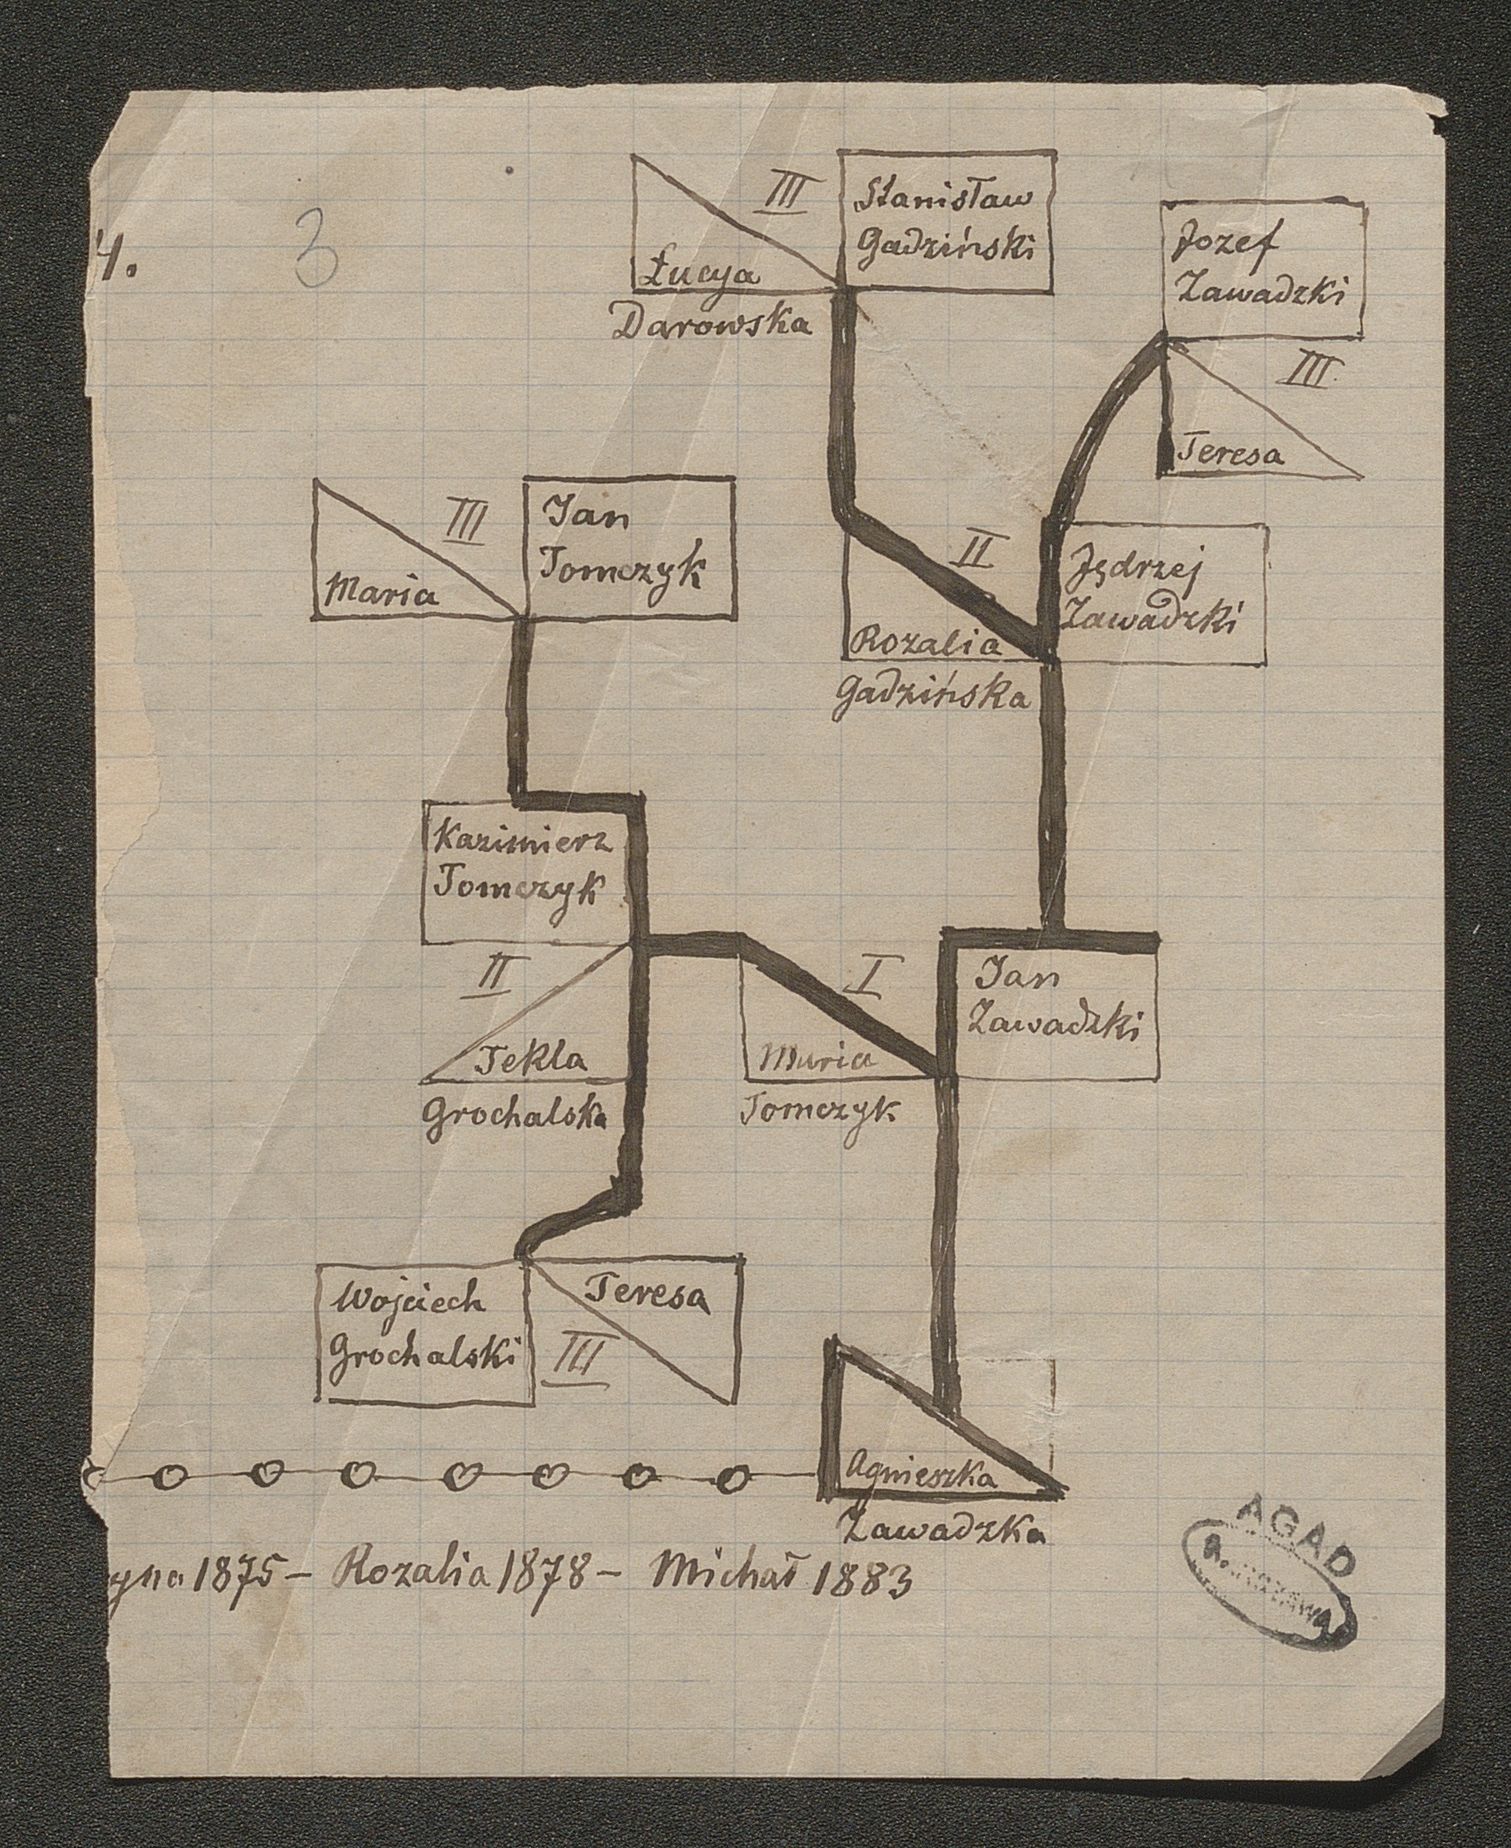 4.
3
III
Stanisław
Gadziński
Łucya
Darowska
Jozef
Zawadzki
III
Teresa
III
Jan
Tomczyk
Maria
II
Jędrzej
Zawadzki
Rozalia
Gadzińska
Kazimierz
Tomczyk
II
Tekla
Grochalska
I
Jan
Zawadzki
Maria
Tomczyk
Wojciech
Grochalski
Teresa
III
Agnieszka
Zawadzka
yna 1875 – Rozalia 1878 – Michał 1883
AGAD